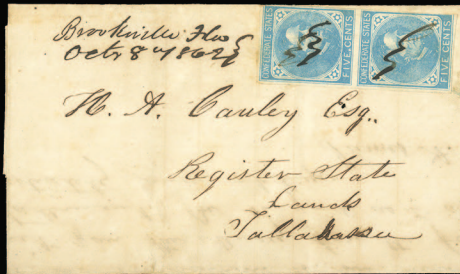 Brooksville Flo
Octr 8th 1862
CONFEDERATE STATES
FIVE CENTS
CONFEDERATE STATES
FIVE CENTS
H. A. Cauley Esq..
Register State
Lands
Tallahassee